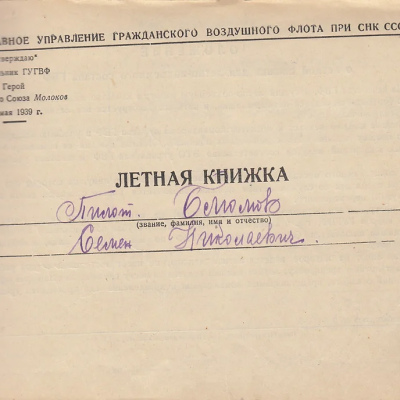 АВНОЕ УПРАВЛЕНИЕ ГРАЖДАНСКОГО ВОЗДУШНОГО ФЛОТА ПРИ СНК ССС
тверждаю"
льник ГУГВФ
Герой
о Союза Молоков
мая 1939 г.
ЛЕТНАЯ КНИЖКА
Пилот.
(звание, фамилия, имя и отчество)
Семен Николаевич.